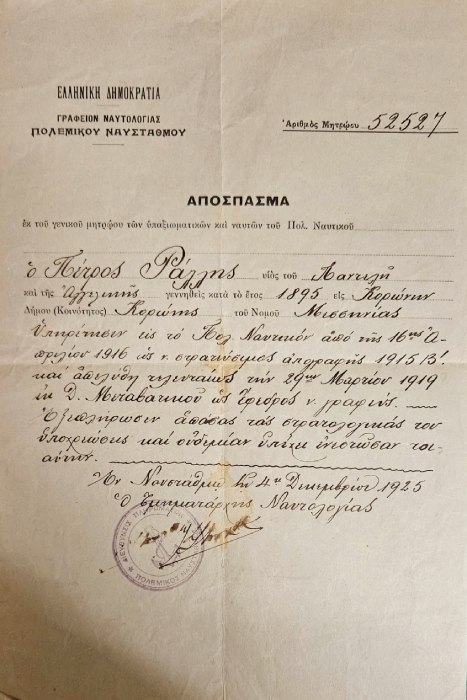 ΕΛΛΗΝΙΚΗ ΔΗΜΟΚΡΑΤΙΑ
ΓΡΑΦΕΙΟΝ ΝΑΥΤΟΛΟΓΙΑΣ
ΠΟΛΕΜΙΚΟΥ ΝΑΥΣΤΑΘΜΟΥ
Ἀριθμὸς Μητρῴου 52527
ΑΠΟΣΠΑΣΜΑ
ἐκ τοῦ γενικοῦ μητρῴου τῶν ὑπαξιωματικῶν καὶ ναυτῶν τοῦ Πολ. Ναυτικοῦ
ὁ Πέτρος Ράλλης υἱὸς τοῦ Παντελῆ
καὶ τῆς Ἀγγελικῆς γεννηθεὶς κατὰ τὸ ἔτος 1895 εἰς Κορώνην
Δήμου (Κοινότητος) Κορώνης τοῦ Νομοῦ Μεσσηνίας
Ὑπηρέτησεν εἰς τὸ Πολ. Ναυτικὸν ἀπὸ τῆς 16ης Ἀ-
πριλίου 1916 ὡς ν. στρατεύσιμος ἀπογραφῆς 1915 Β!
καὶ ἀπελύθη τελευταίως τὴν 29ην Μαρτίου 1919
ἐκ Δ. Μεταβατικοῦ ὡς ἔφεδρος ν. γραφεύς.
Ἐξεπλήρωσεν ἁπάσας τὰς στρατολογικάς του
ὑποχρεώσεις καὶ οὐδεμίαν ὑπέχει ἐνεστῶσαν τοι-
αύτην.
Ἐν Ναυστάθμῳ τῇ 4ῃ Δεκεμβρίου 1925
Ὁ Τμηματάρχης Ναυτολογίας
ΠΟΛΕΜΙΚΟΣ ΝΑΥΣ